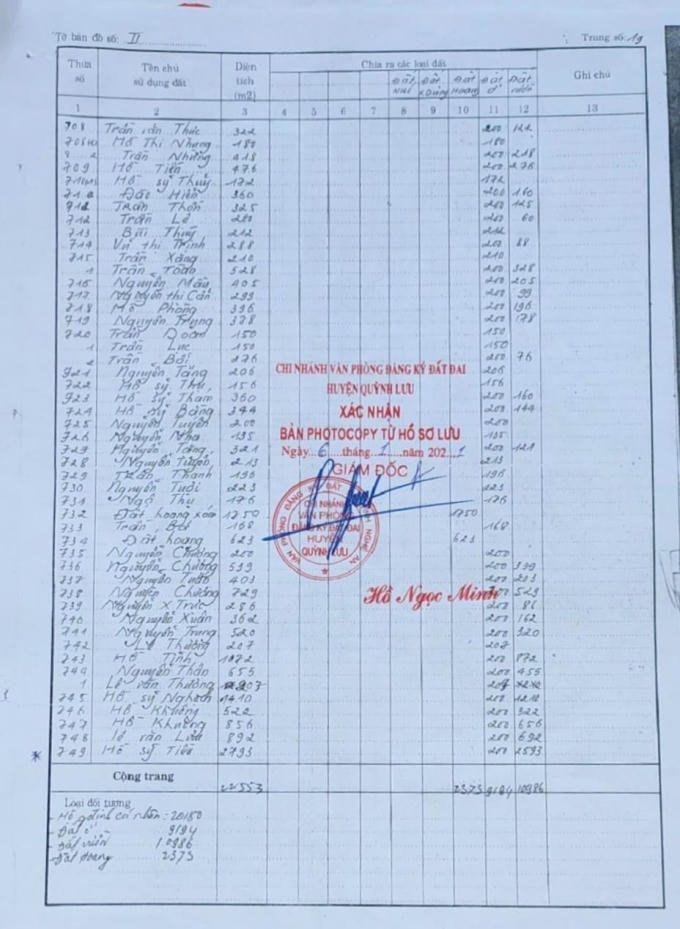 Tờ bản đồ số: II
Trang số: 19
Thửa số | Tên chủ sử dụng đất | Diện tích (m2) | Chia ra các loại đất | Ghi chú
Đất núi | Đất x dựng | Đất hoang | Đất ở | Đất vườn
1 2 3 4 5 6 7 8 9 10 11 12 13
708 Trần văn Thức 322 200 122
Hồ Thị Nhung 180 180
Trần Nhường 418 200 218
709 Hồ Tiến 476 200 276
Hồ sỹ Thuỷ 172 172
Đào Hiền 360 200 160
Trần Thốn 325 200 125
712 Trần Lê 200 60
713 Bùi Thuỷ 212 212
714 Vũ thị Trịnh 288 200 88
715 Trần Xáng 210 210
1 Trần Toàn 528 200 328
716 Nguyễn Mậu 405 200 205
717 Nguyễn thị Căn 299 200 99
718 Hồ Phồng 396 200 196
719 Nguyễn Trung 378 200 178
720 Trần Đoan 150 150
1 Trần Lực 150 150
2 Trần Bối 276 200 76
721 Nguyễn Tăng 206 206
722 Hồ sỹ Thu 156 156
723 Hồ sỹ Tham 360 200 160
724 Hồ sỹ Bàng 344 200 144
725 Nguyễn Tuyên 200 200
726 Nguyễn Nha 195 195
727 Nguyễn Tăng 321 200 121
728 Nguyễn Tường 213 213
729 Trần Thanh 196 196
730 Nguyễn Tuổi 223 223
731 Ngô Thụ 176 176
732 Đất hoang xóm 1750 1750
733 Trần Bối 168 168
734 Đất hoang 623 623
735 Nguyễn Chương 200 200
736 Nguyễn Chương 539 200 339
737 Nguyễn Tuấn 403 200 203
738 Nguyễn Chương 729 200 529
739 Nguyễn X Trực 286 200 86
740 Nguyễn Xuân 362 200 162
741 Nguyễn Trung 520 200 320
742 Lê Thường 207 207
743 Hồ Tịnh 1072 200 872
744 Nguyễn Thân 655 200 455
1 Lê văn Thường
745 Hồ sỹ Nghách 1410 200 1210
746 Hồ Khương 522 200 322
747 Hồ Khương 856 200 656
748 Lê văn Lưu 892 200 692
* 749 Hồ sỹ Tiến 2793 200 2593
CHI NHÁNH VĂN PHÒNG ĐĂNG KÝ ĐẤT ĐAI
HUYỆN QUỲNH LƯU
XÁC NHẬN
BẢN PHOTOCOPY TỪ HỒ SƠ LƯU
Ngày 6 tháng 1 năm 2021
GIÁM ĐỐC
CHI NHÁNH
VĂN PHÒNG
ĐĂNG KÝ ĐẤT ĐAI
HUYỆN
QUỲNH LƯU
Hồ Ngọc Minh
Cộng trang 22553 2373 9194 10986
Loại đối tượng
- Hộ gđình cá nhân: 20180
- Đất ở 9194
- Đất vườn 10986
- Đất hoang 2373